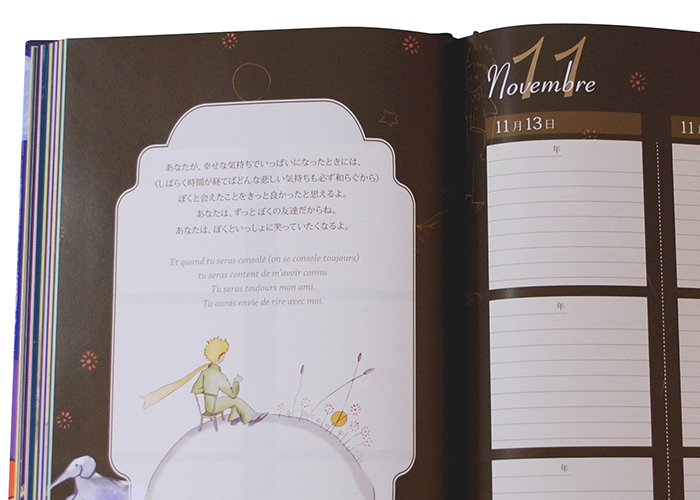 あなたが、幸せな気持ちでいっぱいになったときには、
(しばらく時間が経てばどんな悲しい気持ちも必ず和らぐから)
ぼくと会えたことをきっと良かったと思えるよ。
あなたは、ずっとぼくの友達だからね。
あなたは、ぼくといっしょに笑っていたくなるよ。
Et quand tu seras consolé (on se console toujours)
tu seras content de m'avoir connu.
Tu seras toujours mon ami.
Tu auras envie de rire avec moi.
11
Novembre
11月13日
11月
年
年
年